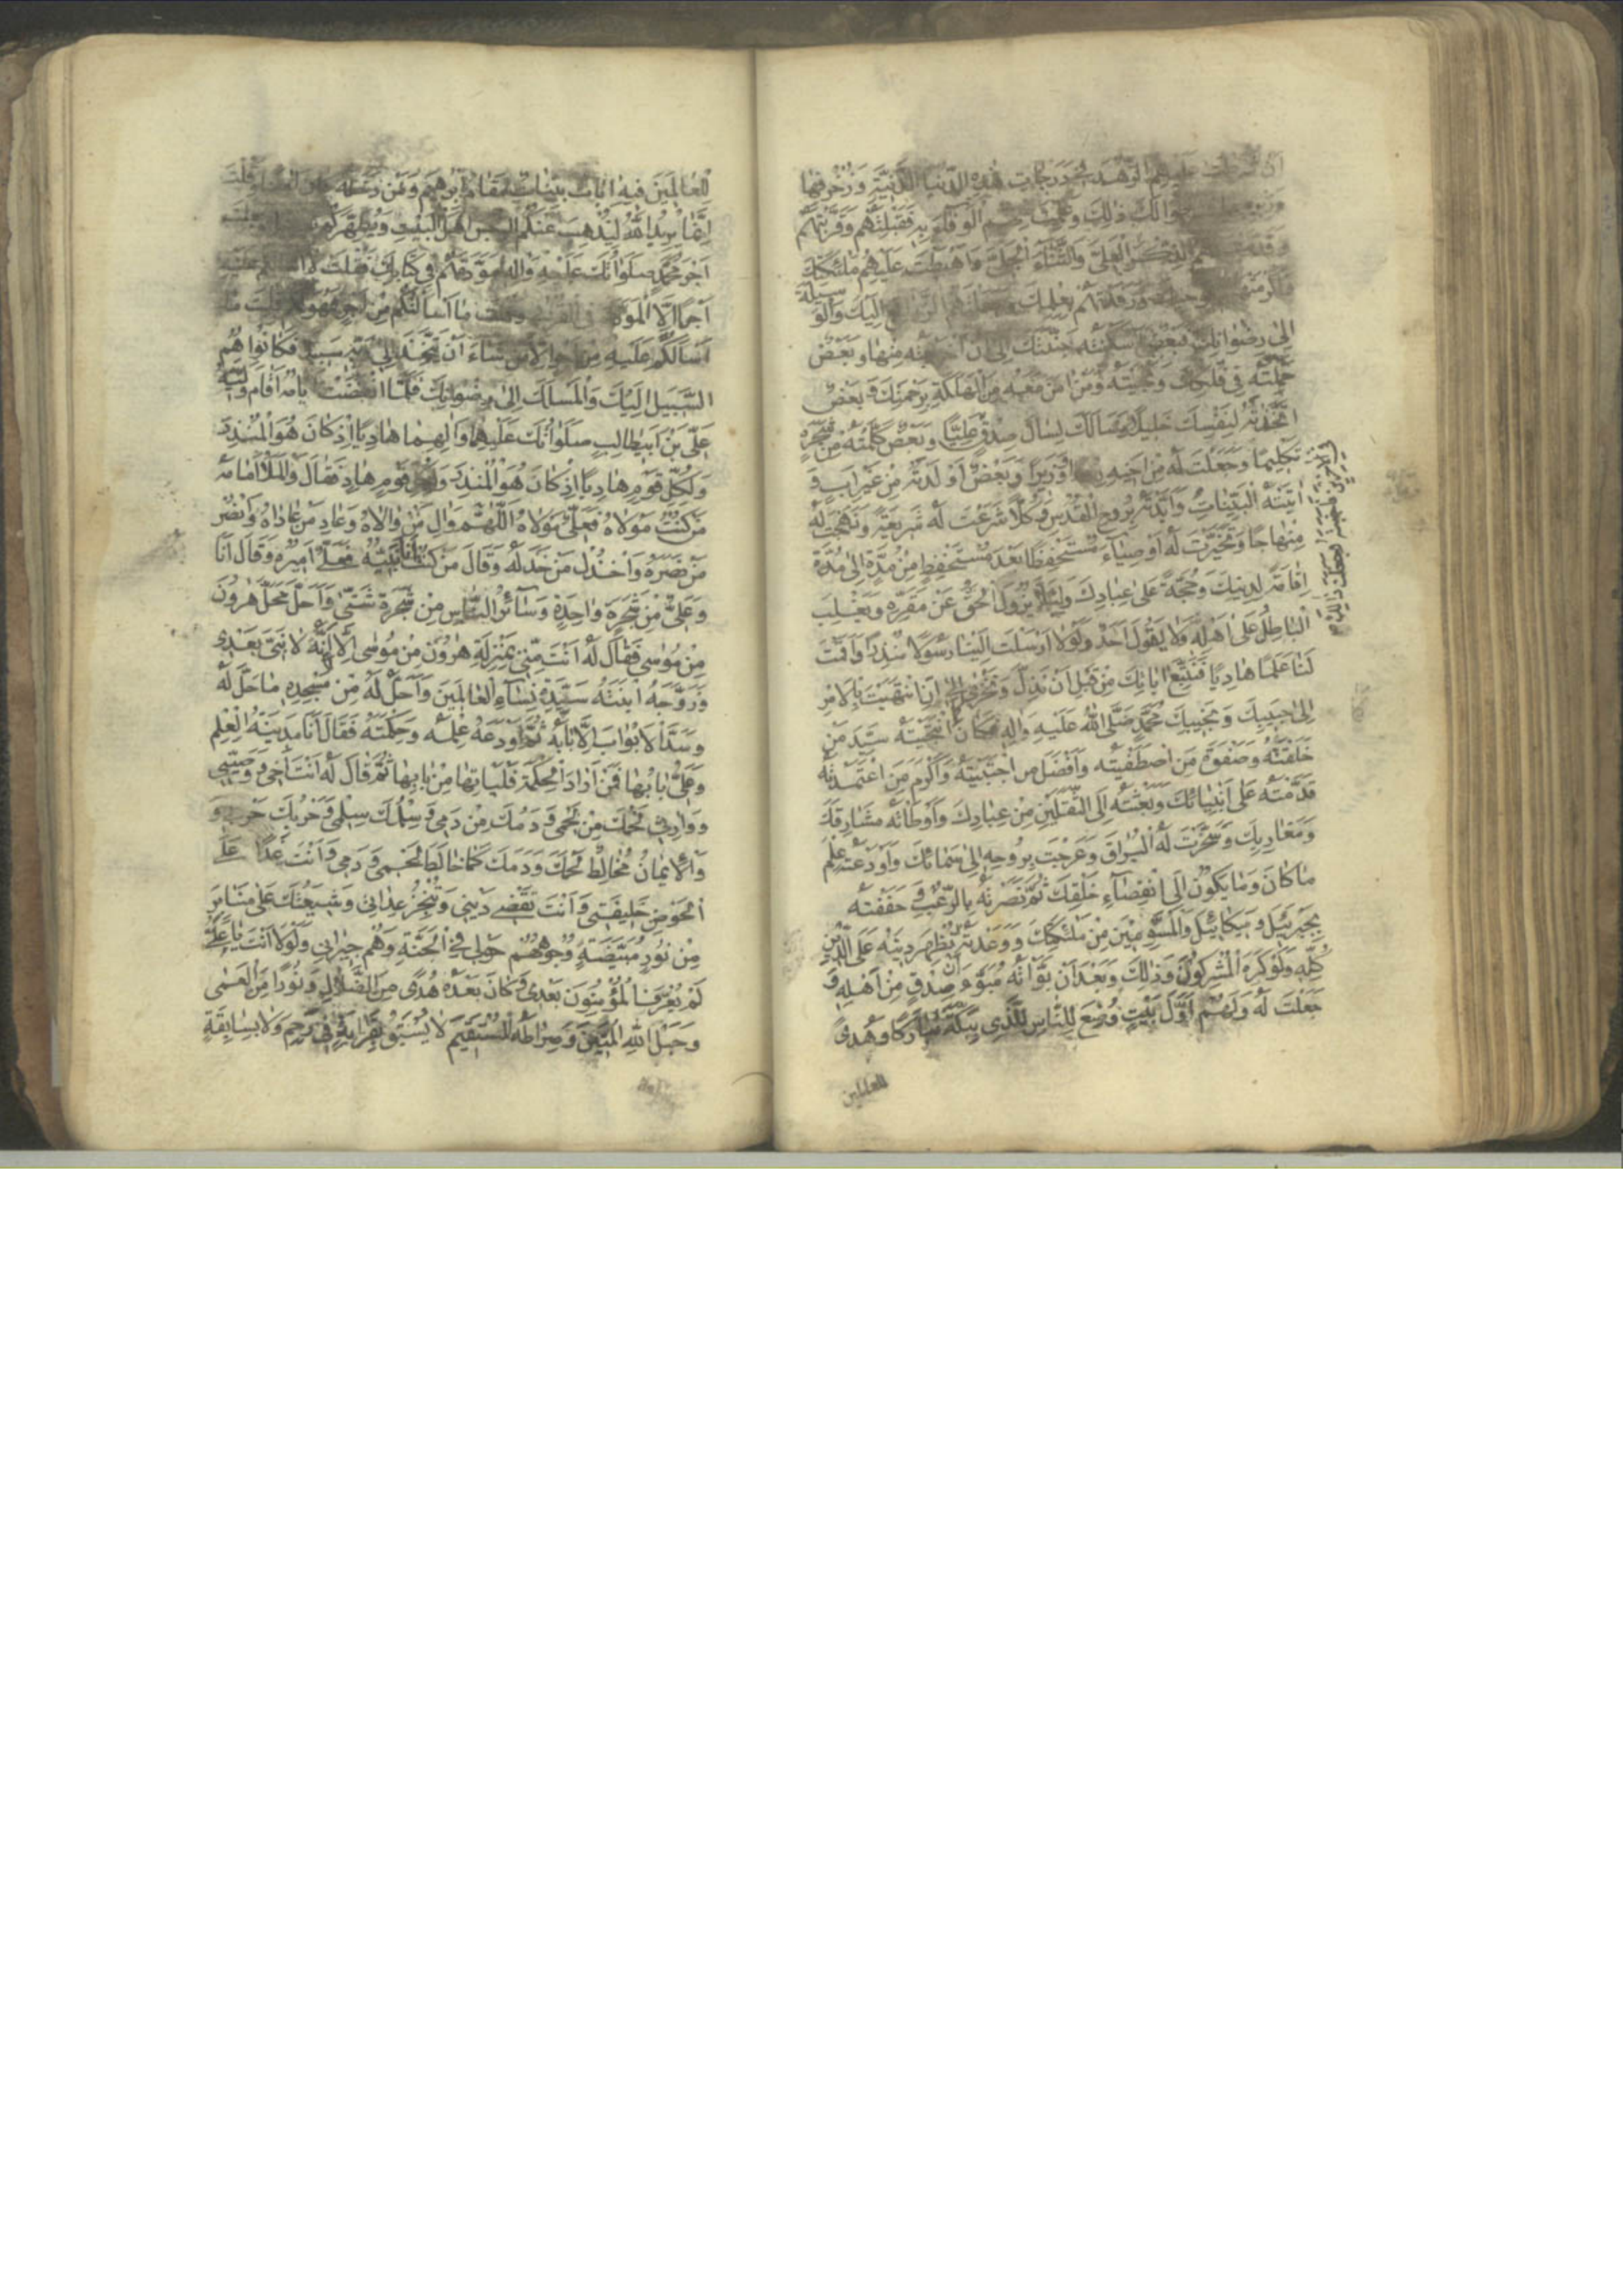 عليهم الزهد في درجات هذه الدنيا الدنية وزخرفها
لك ذلك وعلمت منهم الوفاء به فقبلتهم وقربتهم
وقدمت لهم الذكر العلي والثناء الجلي واهبطت عليهم ملئكتك
ورفدتهم بعلمك اليك والوسيلة
الى رضوانك فبعض اسكنته جنتك الى ان منها وبعض
حملته في فلكك ونجيته ومن امن معه من الهلكة برحمتك وبعض
اتخذته لنفسك خليلا وسالك لسان صدق عليا وبعض كلمته من شجرة
تكليما وجعلت له من اخيه وزيرا وبعض اولدته من غير اب و
اتيته البينات وايدته بروح القدس وكلا شرعت له شريعة ونهجت له
منهاجا وتخيرت له اوصياء مستحفظا بعد مستحفظ من مدة الى مدة
اقامة لدينك وحجة على عبادك ولئلا يزول الحق عن مقره ويغلب
الباطل على اهله ولا يقول احد لولا ارسلت الينا رسولا منذرا واقمت
لنا علما هاديا فنتبع اياتك من قبل ان نذل ونخزى الى ان انتهيت بالامر
الى حبيبك ونجيبك محمد صلى الله عليه واله فكان كما انتجبته سيد من
خلقته وصفوة من اصطفيته وافضل من اجتبيته واكرم من اعتمدته
قدمته على انبيائك وبعثته الى الثقلين من عبادك واوطاته مشارقك
ومغاربك وسخرت له البراق وعرجت بروحه الى سمائك واودعته علم
ما كان وما يكون الى انقضاء خلقك ثم نصرته بالرعب وحففته
بجبرئيل وميكائيل والمسومين من ملئكتك ووعدته ان تظهر دينه على الدين
كله ولو كره المشركون وذلك بعد ان بواته مبوء صدق من اهله و
جعلت له ولهم اول بيت وضع للناس للذي ببكة مباركا وهدى
للعالمين
للعالمين فيه ايات بينات مقام ابرهيم ومن دخله كان امنا وقلت
انما يريد الله ليذهب عنكم الرجس اهل البيت ويطهركم
اجر محمد صلواتك عليه واله مودتهم في كتابك فقلت لا اسئلكم عليه
اجرا الا المودة في القربى وقلت ما سالتكم من اجر فهو لكم وقلت ما
اسالكم عليه من اجر الا من شاء ان يتخذ الى ربه سبيلا فكانوا هم
السبيل اليك والمسلك الى رضوانك فلما انقضت ايامه اقام وليه
علي بن ابيطالب صلواتك عليهما والهما هاديا اذ كان هو المنذر
ولكل قوم هاديا اذ كان هو المنذر ولكل قوم هاد فقال والملا امامه
من كنت مولاه فعلي مولاه اللهم وال من والاه وعاد من عاداه وانصر
من نصره واخذل من خذله وقال من كنت انا نبيه فعلي اميره وقال انا
وعلي من شجرة واحدة وسائر الناس من شجرة شتى واحله محل هرون
من موسى فقال له انت مني بمنزلة هرون من موسى الا انه لا نبي بعدي
وزوجه ابنته سيدة نساء العالمين واحل له من مسجده ما حل له
وسد الابواب الا بابه ثم اودعه علمه وحكمته فقال انا مدينة العلم
وعلي بابها فمن اراد الحكمة فلياتها من بابها ثم قال له انت اخي ووصيي
ووارثي لحمك من لحمي ودمك من دمي وسلمك سلمي وحربك حربي و
والايمان مخالط لحمك ودمك كما خالط لحمي ودمي وانت غدا على
الحوض خليفتي وانت تقضي ديني وتنجز عداتي وشيعتك على منابر
من نور مبيضة وجوههم حولي في الجنة وهم جيراني ولولا انت يا علي
لم يعرف المؤمنون بعدي وكان بعده هدى من الضلال ونورا من العمى
وحبل الله المتين وصراطه المستقيم لا يسبق بقرابة في رحم ولا بسابقة